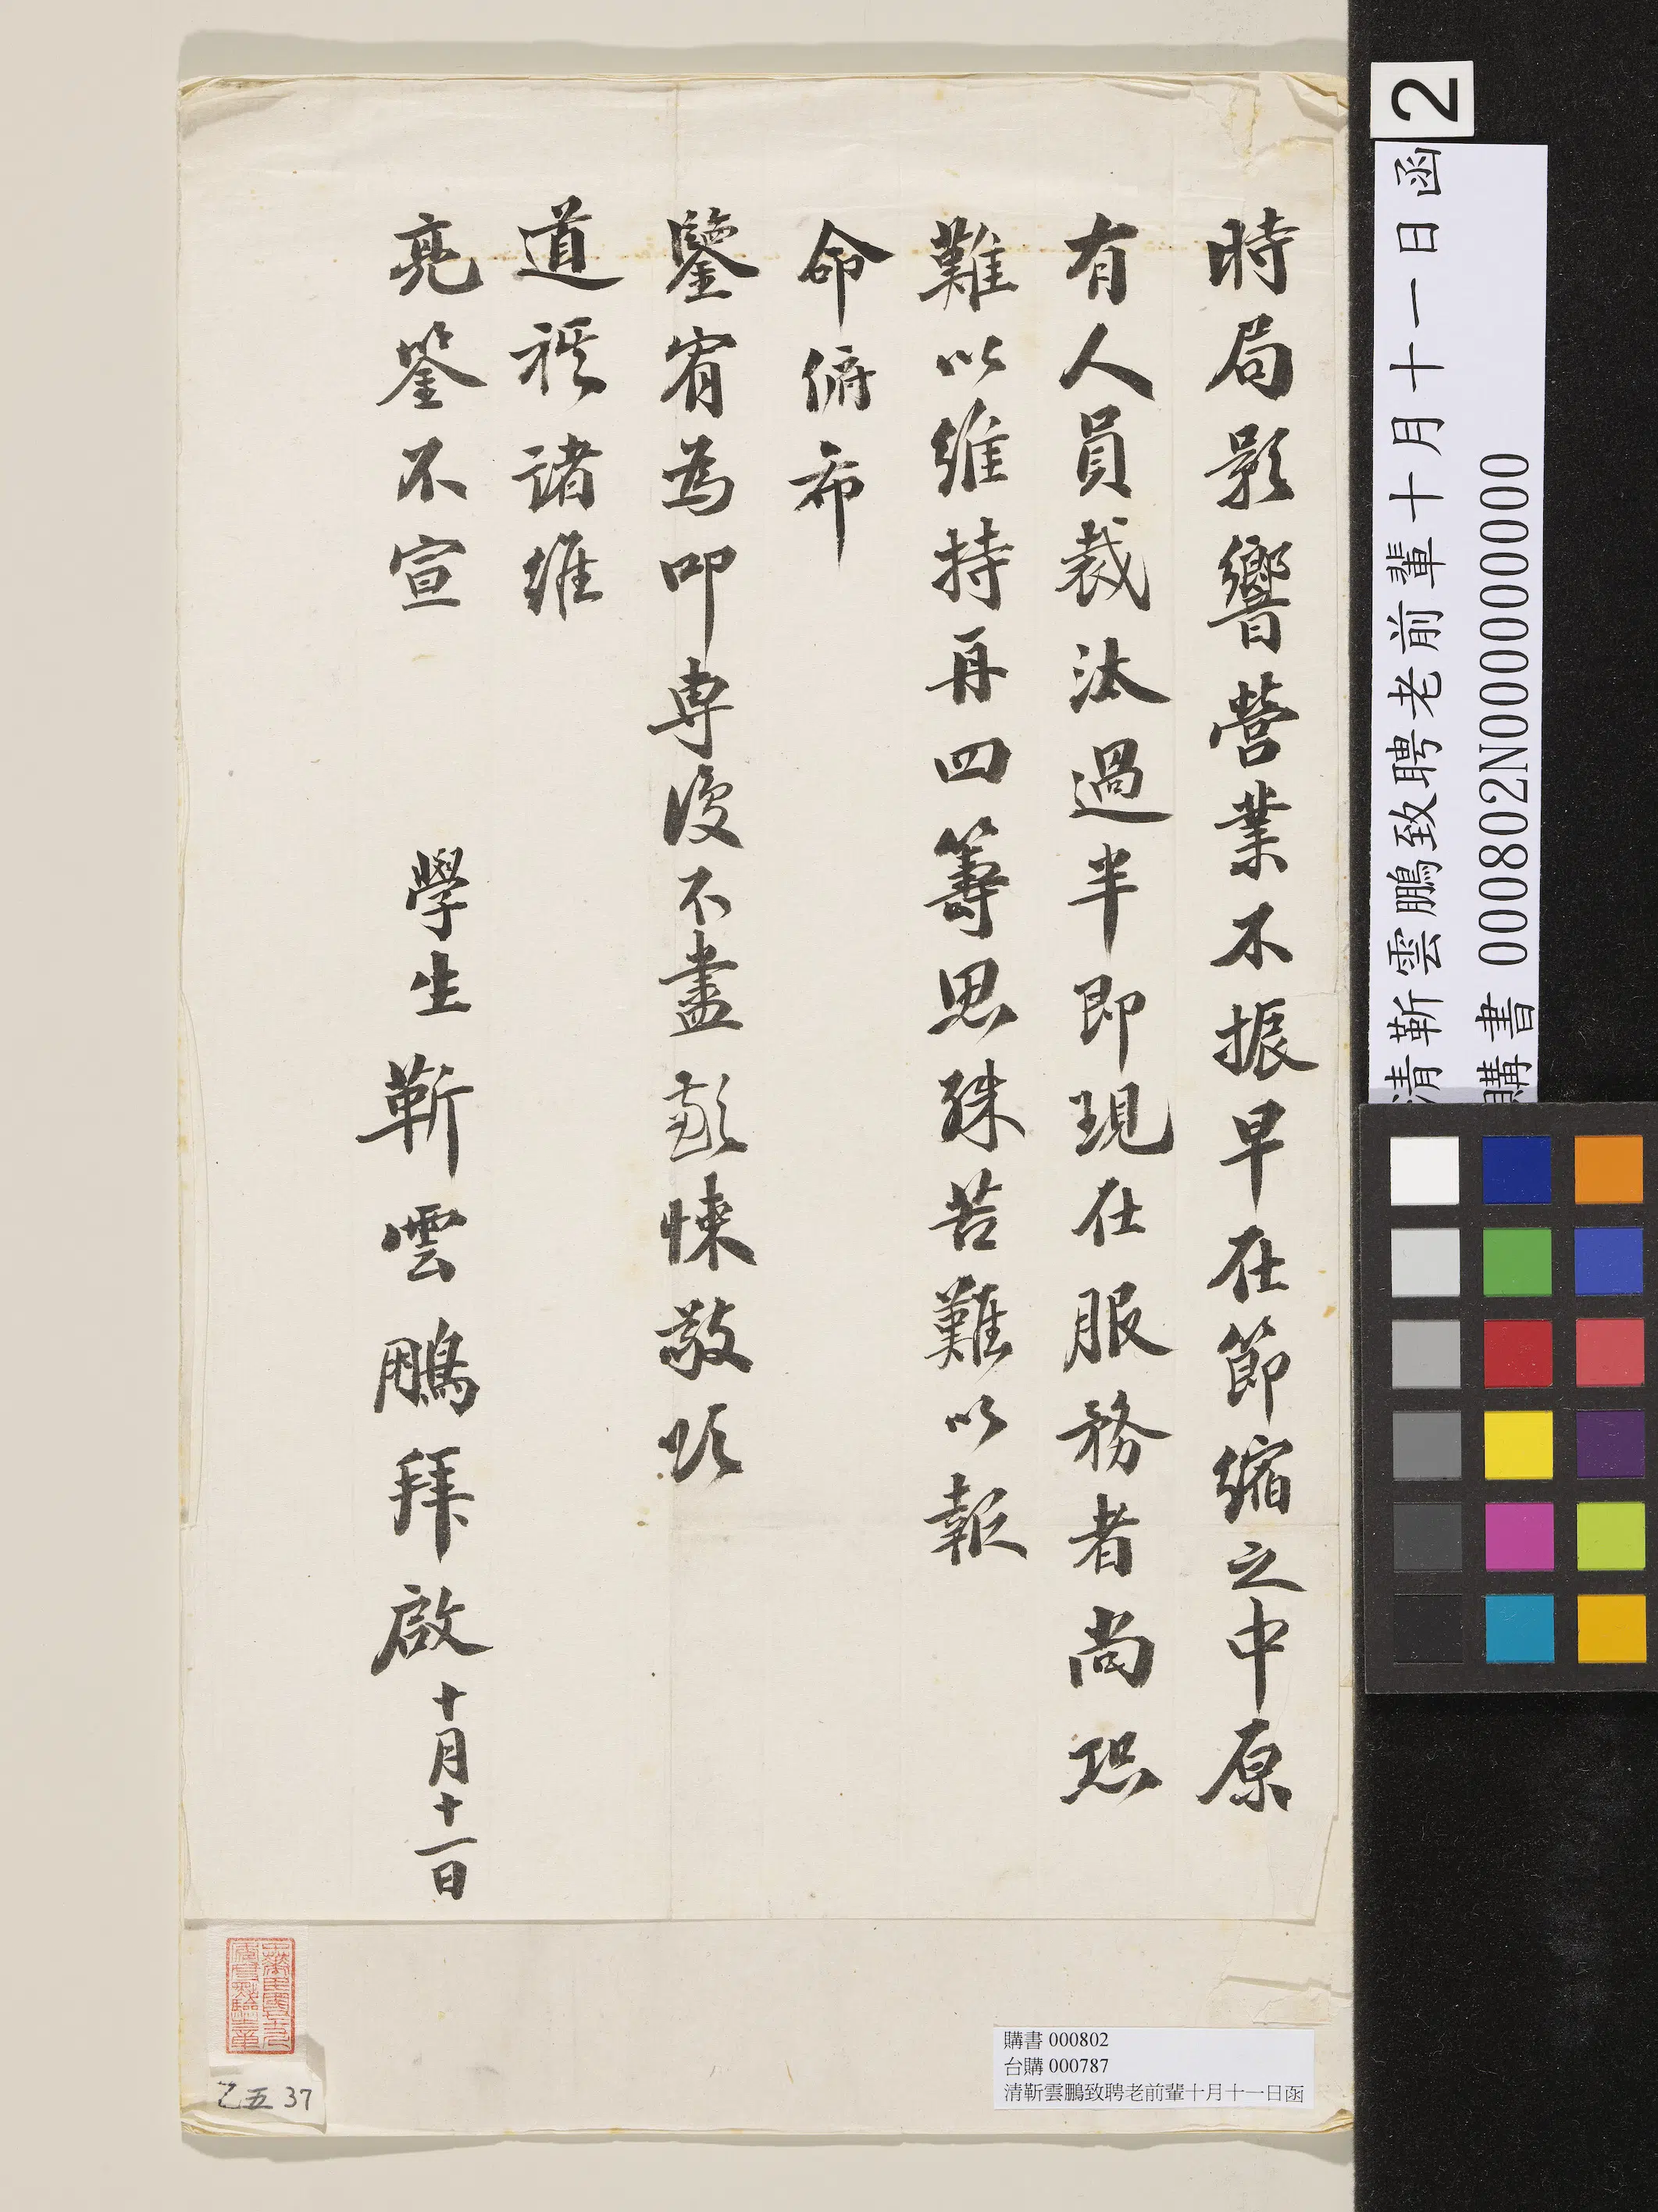 時局影響營業不振早在節縮之中原
有人員裁汰過半即現在服務者尚恐
難以維持再四籌思殊苦難以報
命俯希
鑒宥為叩專復不盡歉悚敬頌
道祺諸維
亮詧不宣
學生靳雲鵬拜啟十月十一日
2
清靳雲鵬致聘老前輩十月十一日函
購書 000802N000000000
購書 000802
台購 000787
清靳雲鵬致聘老前輩十月十一日函
乙五 37